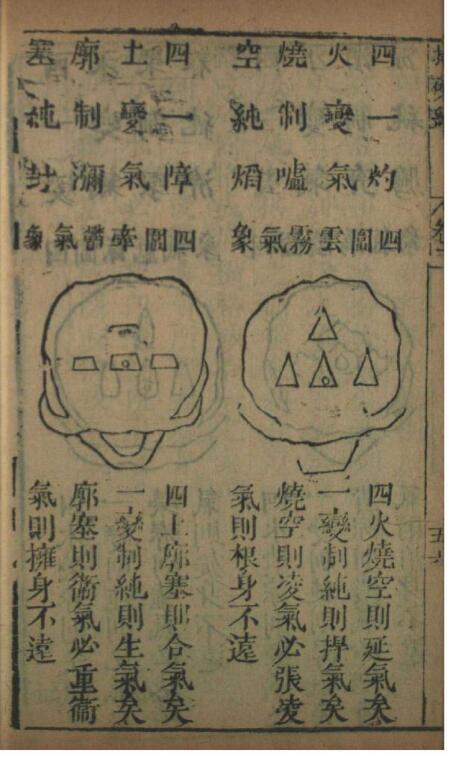 四火燒空
一變制純
灼氣噓熖
四圍雲霧氣象
四火燒空則延氣矣
一變制純則氣矣
燒空則凌氣必張凌
氣則根身不遠
四土廓塞
一變制純
障氣瀰封
四圍牽氣象
四土廓塞則合氣矣
一變制純則生氣矣
廓塞則衛氣必重衛
氣則擁身不遠